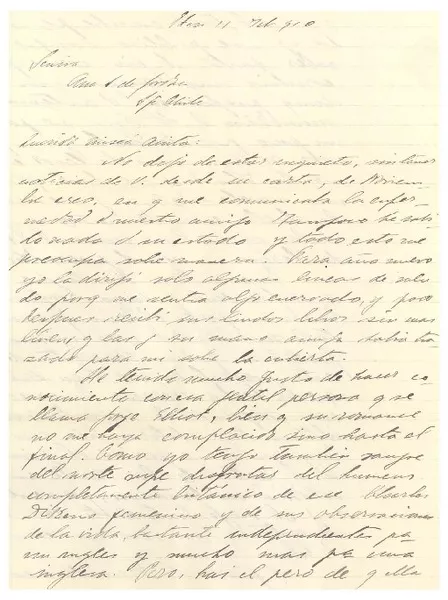 11 Feb 910
Señora
Ana S de
Chile
Querida misiá Anita:
No dejo de estar inquieto, sin tener
noticias de V. desde su carta, de Noviem
bre creo, en q me comunicaba la enfer
medad d nuestro amigo Tampoco he sabi
do nada d su estado y todo esto me
preocupa sobre manera. Para año nuevo
yo le dirijí solo algunas líneas de salu
do porq me sentía algo enervado, y poco
despues recibí sus lindos libros sin mas
líneas q las q su mano amiga había tra
zado para mí sobre la cubierta.
He tenido mucho gusto de hacer co
nocimiento con esa gentil persona q se
llama Jorge Elliot, bien q su romance
no me haya complacido sino hasta el
final. Como yo tengo también sangre
del norte supe disfrutar del humour
completamente británico de ese Charles
Dickens femenino y de sus observaciones
de la vida, bastante independientes pa
un inglés y mucho mas pa una
inglesa. Pero, hai el pero de q ella